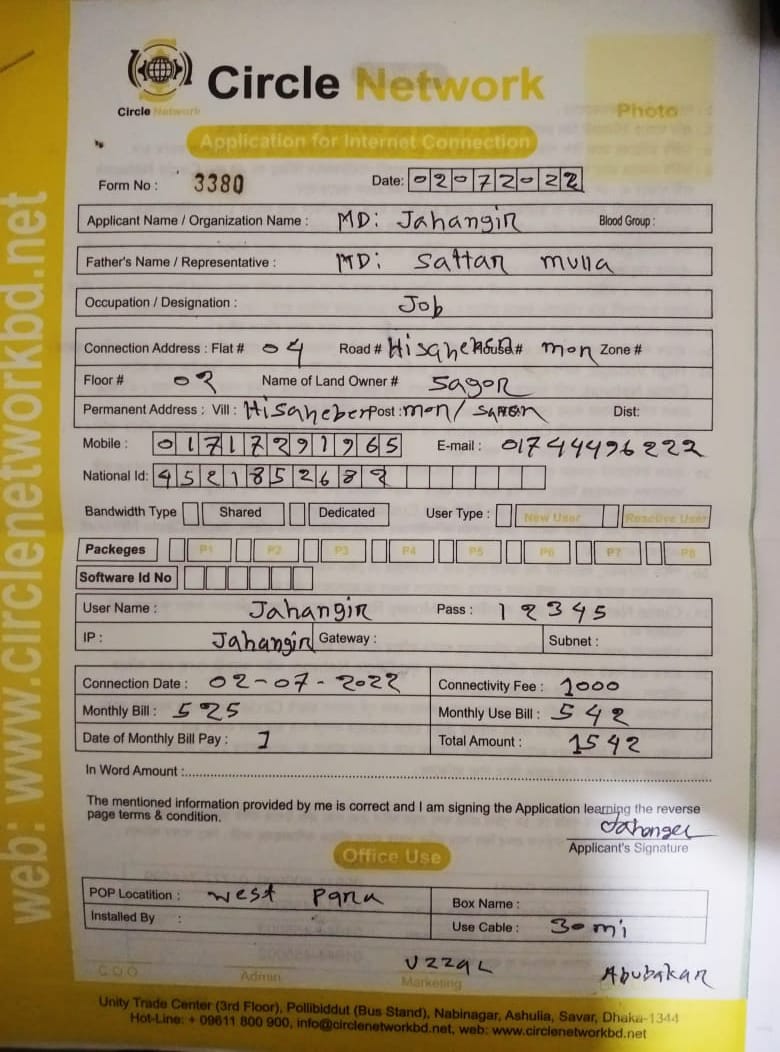 web: www.circlenetworkbd.net
Circle Network
Circle Network
Photo
Application for Internet Connection
Form No : 3380 Date: 02072022
Applicant Name / Organization Name : MD: Jahangir Blood Group :
Father's Name / Representative : MD: Sattar mulla
Occupation / Designation : Job
Connection Address : Flat # 04 Road # House# mon Zone #
Floor # 02 Name of Land Owner # Sagor
Permanent Address : Vill : Hisaheber Post : mon/ Dist:
Mobile : 01717291965 E-mail : 01744496222
National Id: 4521852682
Bandwidth Type Shared Dedicated User Type : New User Reactive User
Packeges P1 P2 P3 P4 P5 P6 P7 P8
Software Id No
User Name : Jahangir Pass : 12345
IP : Jahangir Gateway : Subnet :
Connection Date : 02-07-2022 Connectivity Fee : 1000
Monthly Bill : 525 Monthly Use Bill : 542
Date of Monthly Bill Pay : 1 Total Amount : 1542
In Word Amount :
The mentioned information provided by me is correct and I am signing the Application learning the reverse
page terms & condition.
Applicant's Signature
Office Use
POP Locatition : west para Box Name :
Installed By : Use Cable : 30 mi
UzzaL Abubakar
COO Admin Marketing
Unity Trade Center (3rd Floor), Pollibiddut (Bus Stand), Nabinagar, Ashulia, Savar, Dhaka-1344
Hot-Line: + 09611 800 900, info@circlenetworkbd.net, web: www.circlenetworkbd.net